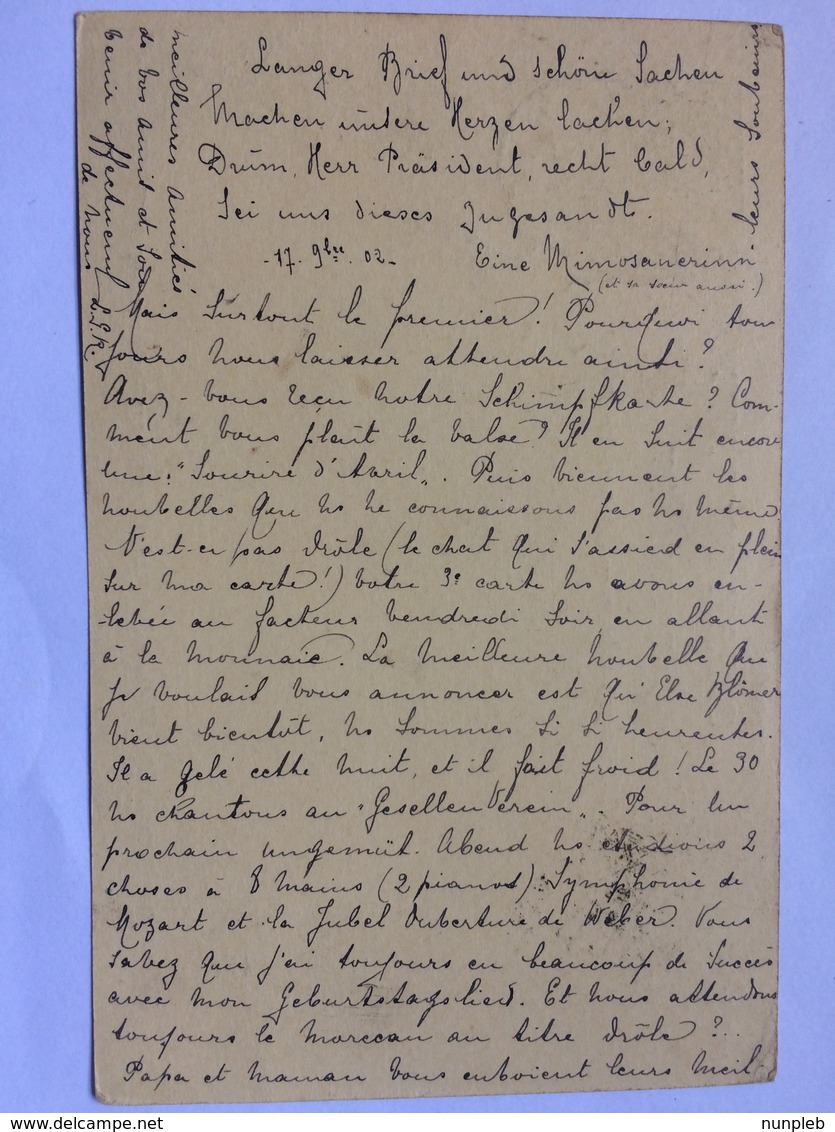 Langer Brief und schöne Sachen
Machen unsere Herzen lachen;
Drum, Herr Präsident, recht bald,
Sei uns dieses zugesandt.
-17. 9bre. 02- Eine Mimosanerinn
(et sa sœur aussi.)
Mais surtout le premier! Pourquoi tou
jours nous laisser attendre ainsi?
Avez-vous reçu notre Schimpfkarte? Com-
ment vous plaît la valse? Il en suit encore
une: "Sourire d'Avril". Puis viennent les
nouvelles que ns ne connaissons pas ns même
N'est-ce pas drôle (le chat qui s'assied en plein
sur ma carte!) votre 3e carte ns avons en-
-levée au facteur vendredi soir, en allant
à la monnaie. La meilleure nouvelle que
je voulais vous annoncer est qu'Else Blömer
vient bientôt, ns sommes si si heureuses.
Il a gelé cette nuit, et il fait froid! Le 30
ns chantons au "Gesellenverein". Pour un
prochain ungemüt. Abend ns étudions 2
choses à 8 mains (2 pianos): Symphonie de
Mozart et la Jubel Ouberture de Weber. Vous
savez que j'ai toujours eu beaucoup de succès
avec mon Geburtstagslied. Et nous attendons
toujours le morceau au titre drôle?..
Papa et maman vous envoient leurs meil-
meilleures amitiés
de vos amis et sou
venir affectueux
de nous L.G.K.
leurs souvenirs
nunpleb